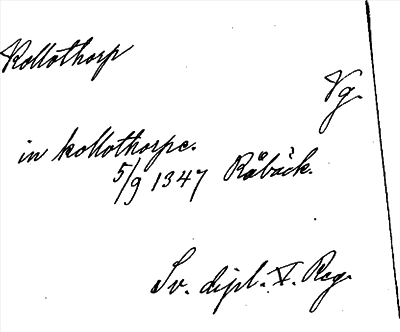 Kollothorp
Vg.
in kollothorpe.
5/9 1347 Råbäck.
Sv. dipl. V. Reg.